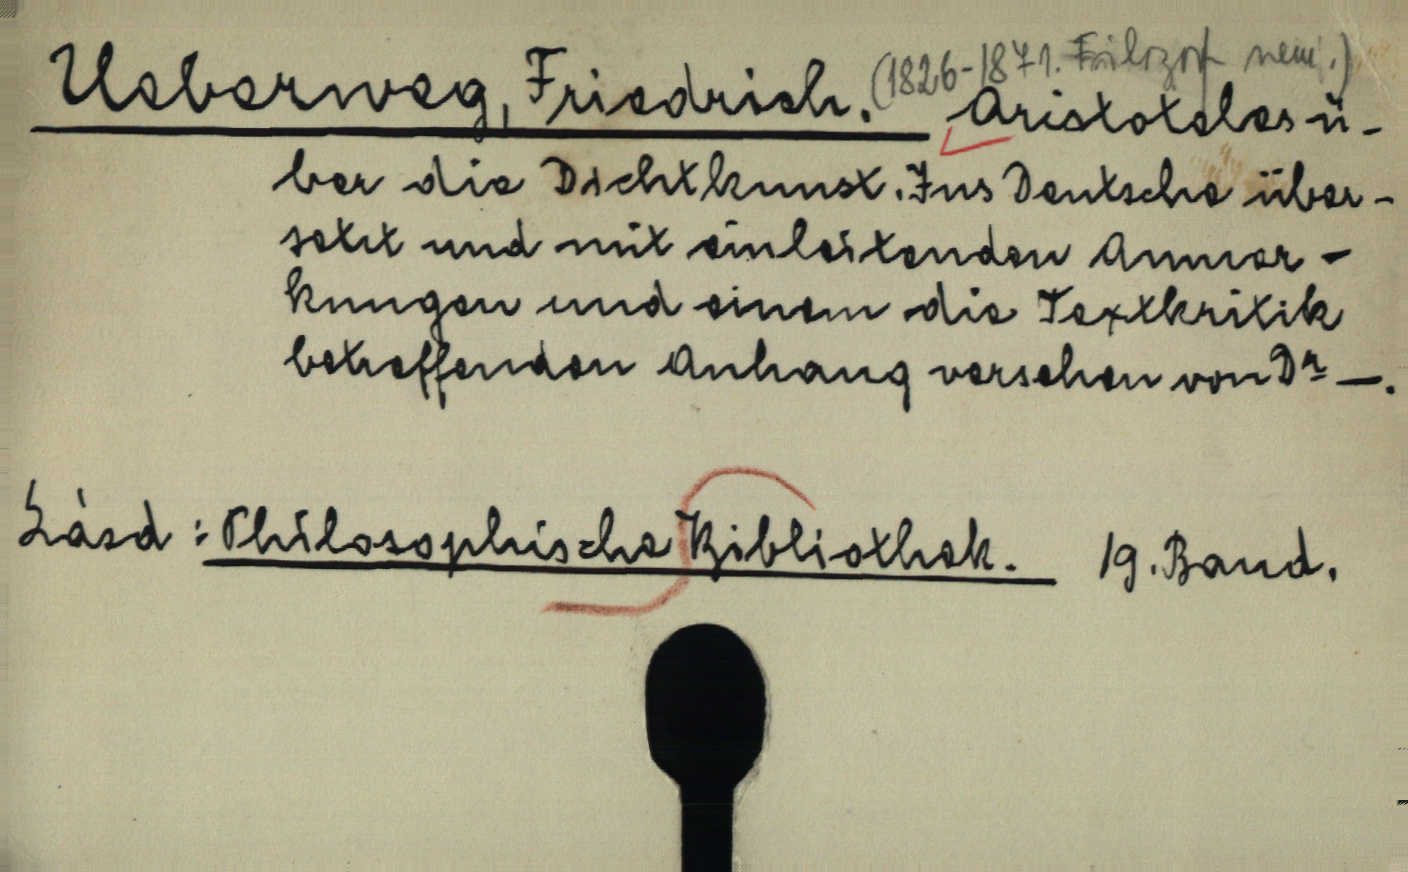 Ueberweg, Friedrich. (1826-1871. Filozof nem.) Aristoteles ü-
ber die Dichtkunst. Ins Deutsche über-
setzt und mit einleitenden Anmer-
kungen und einem die Textkritik
betreffenden Anhang versehen von Dr —.
Lásd: Philosophische Bibliothek. 19. Band.